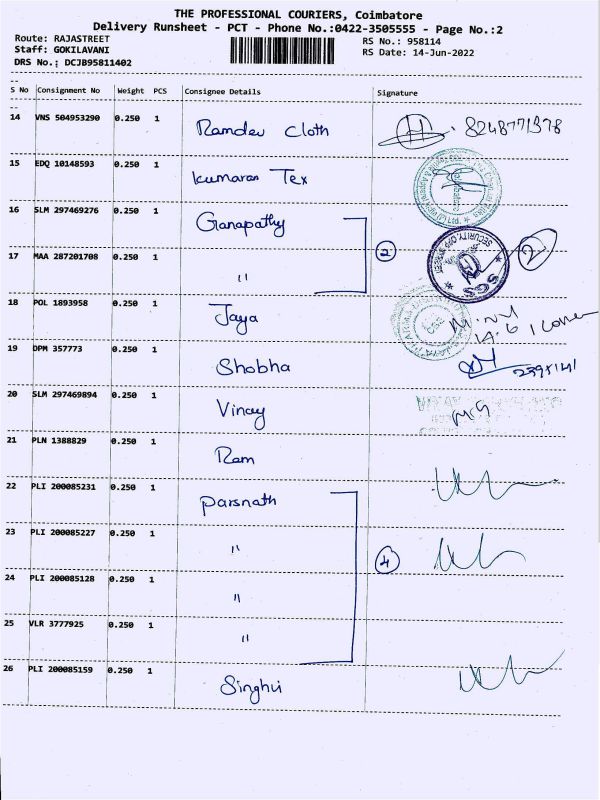 THE PROFESSIONAL COURIERS, Coimbatore
Delivery Runsheet - PCT - Phone No.:0422-3505555 - Page No.:2
Route: RAJASTREET
RS No.: 958114
Staff: GOKILAVANI
RS Date: 14-Jun-2022
DRS No.; DCJB95811402
S No Consignment No Weight PCS Consignee Details Signature
14 VNS 504953290 0.250 1 Ramdev Cloth 8248771378
15 EDQ 10148593 0.250 1 Kumaran Tex
16 SLM 297469276 0.250 1 Ganapathy
17 MAA 287201708 0.250 1 " 2 SECURITY, OPP STREET SGS 2
18 POL 1893958 0.250 1 Jaya
19 DPM 357773 0.250 1 Shobha
20 SLM 297469894 0.250 1 Vinay
21 PLN 1388829 0.250 1 Ram
22 PLI 200085231 0.250 1 Parsnath
23 PLI 200085227 0.250 1 " 4
24 PLI 200085128 0.250 1 "
25 VLR 3777925 0.250 1 "
26 PLI 200085159 0.250 1 Singhvi